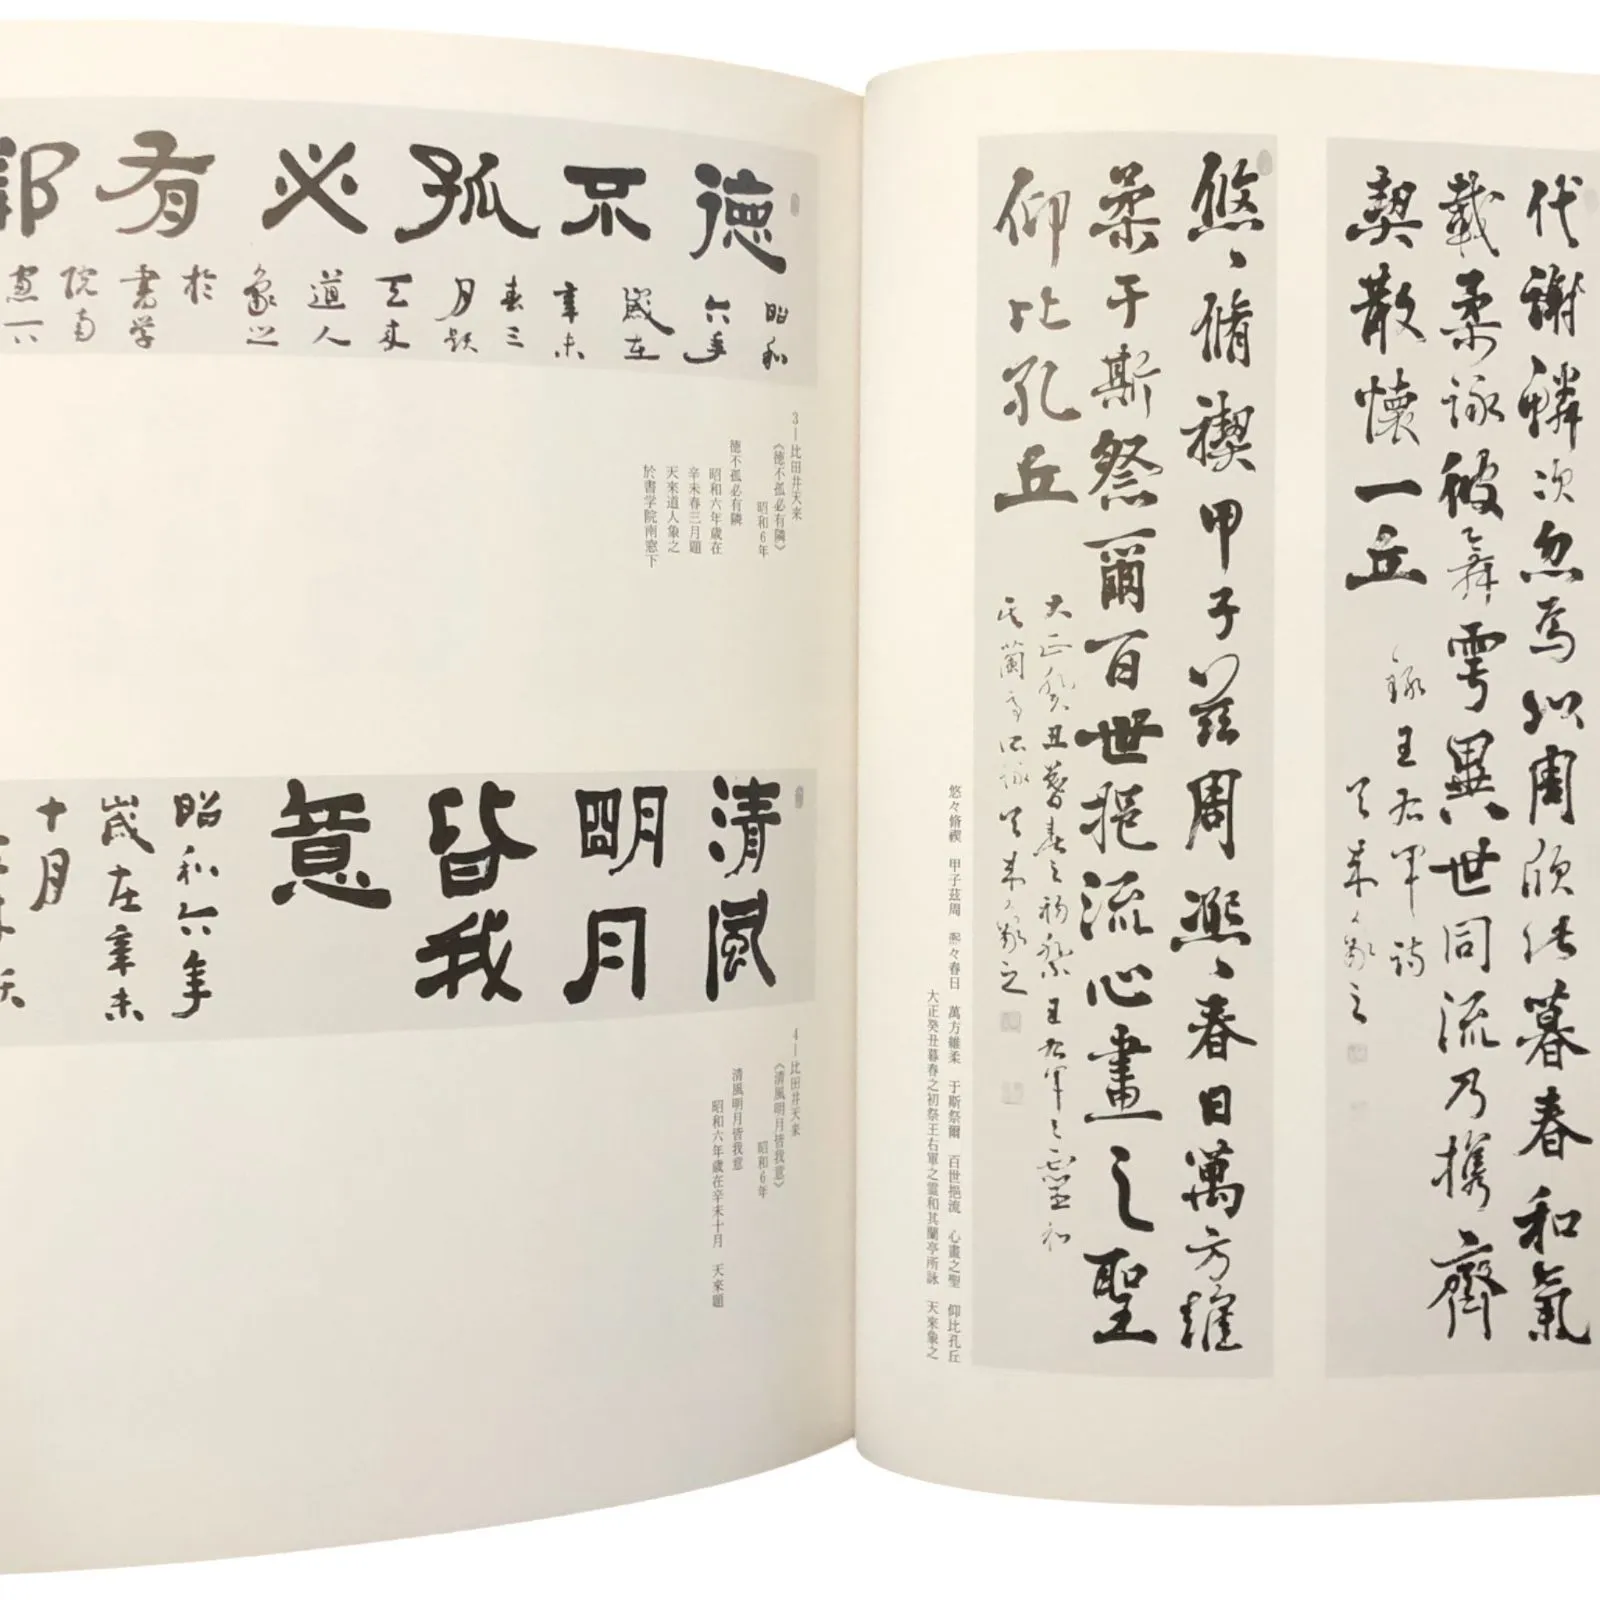 代謝鱗次忽焉以周欣此暮春和氣
載柔詠彼舞雩異世同流乃携齊
契散懷一丘
録王右軍詩
天来象之
悠々脩禊甲子茲周熙々春日萬方維
柔于斯祭爾百世挹流心畫之聖
仰比孔丘
大正癸丑暮春之初祭王右軍之靈和
其蘭亭所詠天来象之
悠々脩禊 甲子茲周 熙々春日 萬方維柔 于斯祭爾 百世挹流 心畫之聖 仰比孔丘
大正癸丑暮春之初祭王右軍之霊和其蘭亭所詠 天来象之
徳不孤必有鄰
昭和
六年
歳在
辛未
春三
月題
天来
道人
象之
於
書学
院南
窓下
3―比田井天来
《徳不孤必有隣》
昭和6年
徳不孤必有隣
昭和六年歳在
辛未春三月題
天來道人象之
於書学院南窓下
清風
明月
皆我
意
昭和六年
歳在辛未
十月
4―比田井天来
《清風明月皆我意》
昭和6年
清風明月皆我意
昭和六年歳在辛未十月 天来題